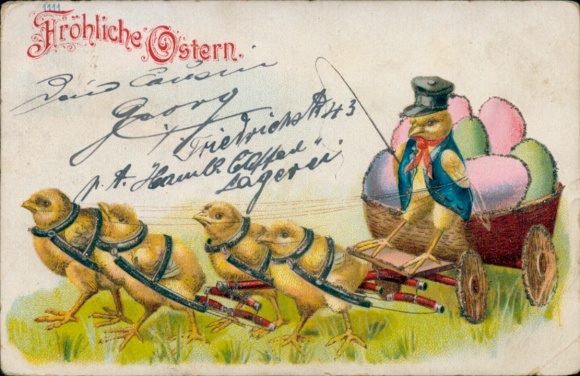 1111
Fröhliche Ostern.
Dein Cousin
Georg
Friedrichstr 43
p. A. "Hamb. Caffee"
Lagerei